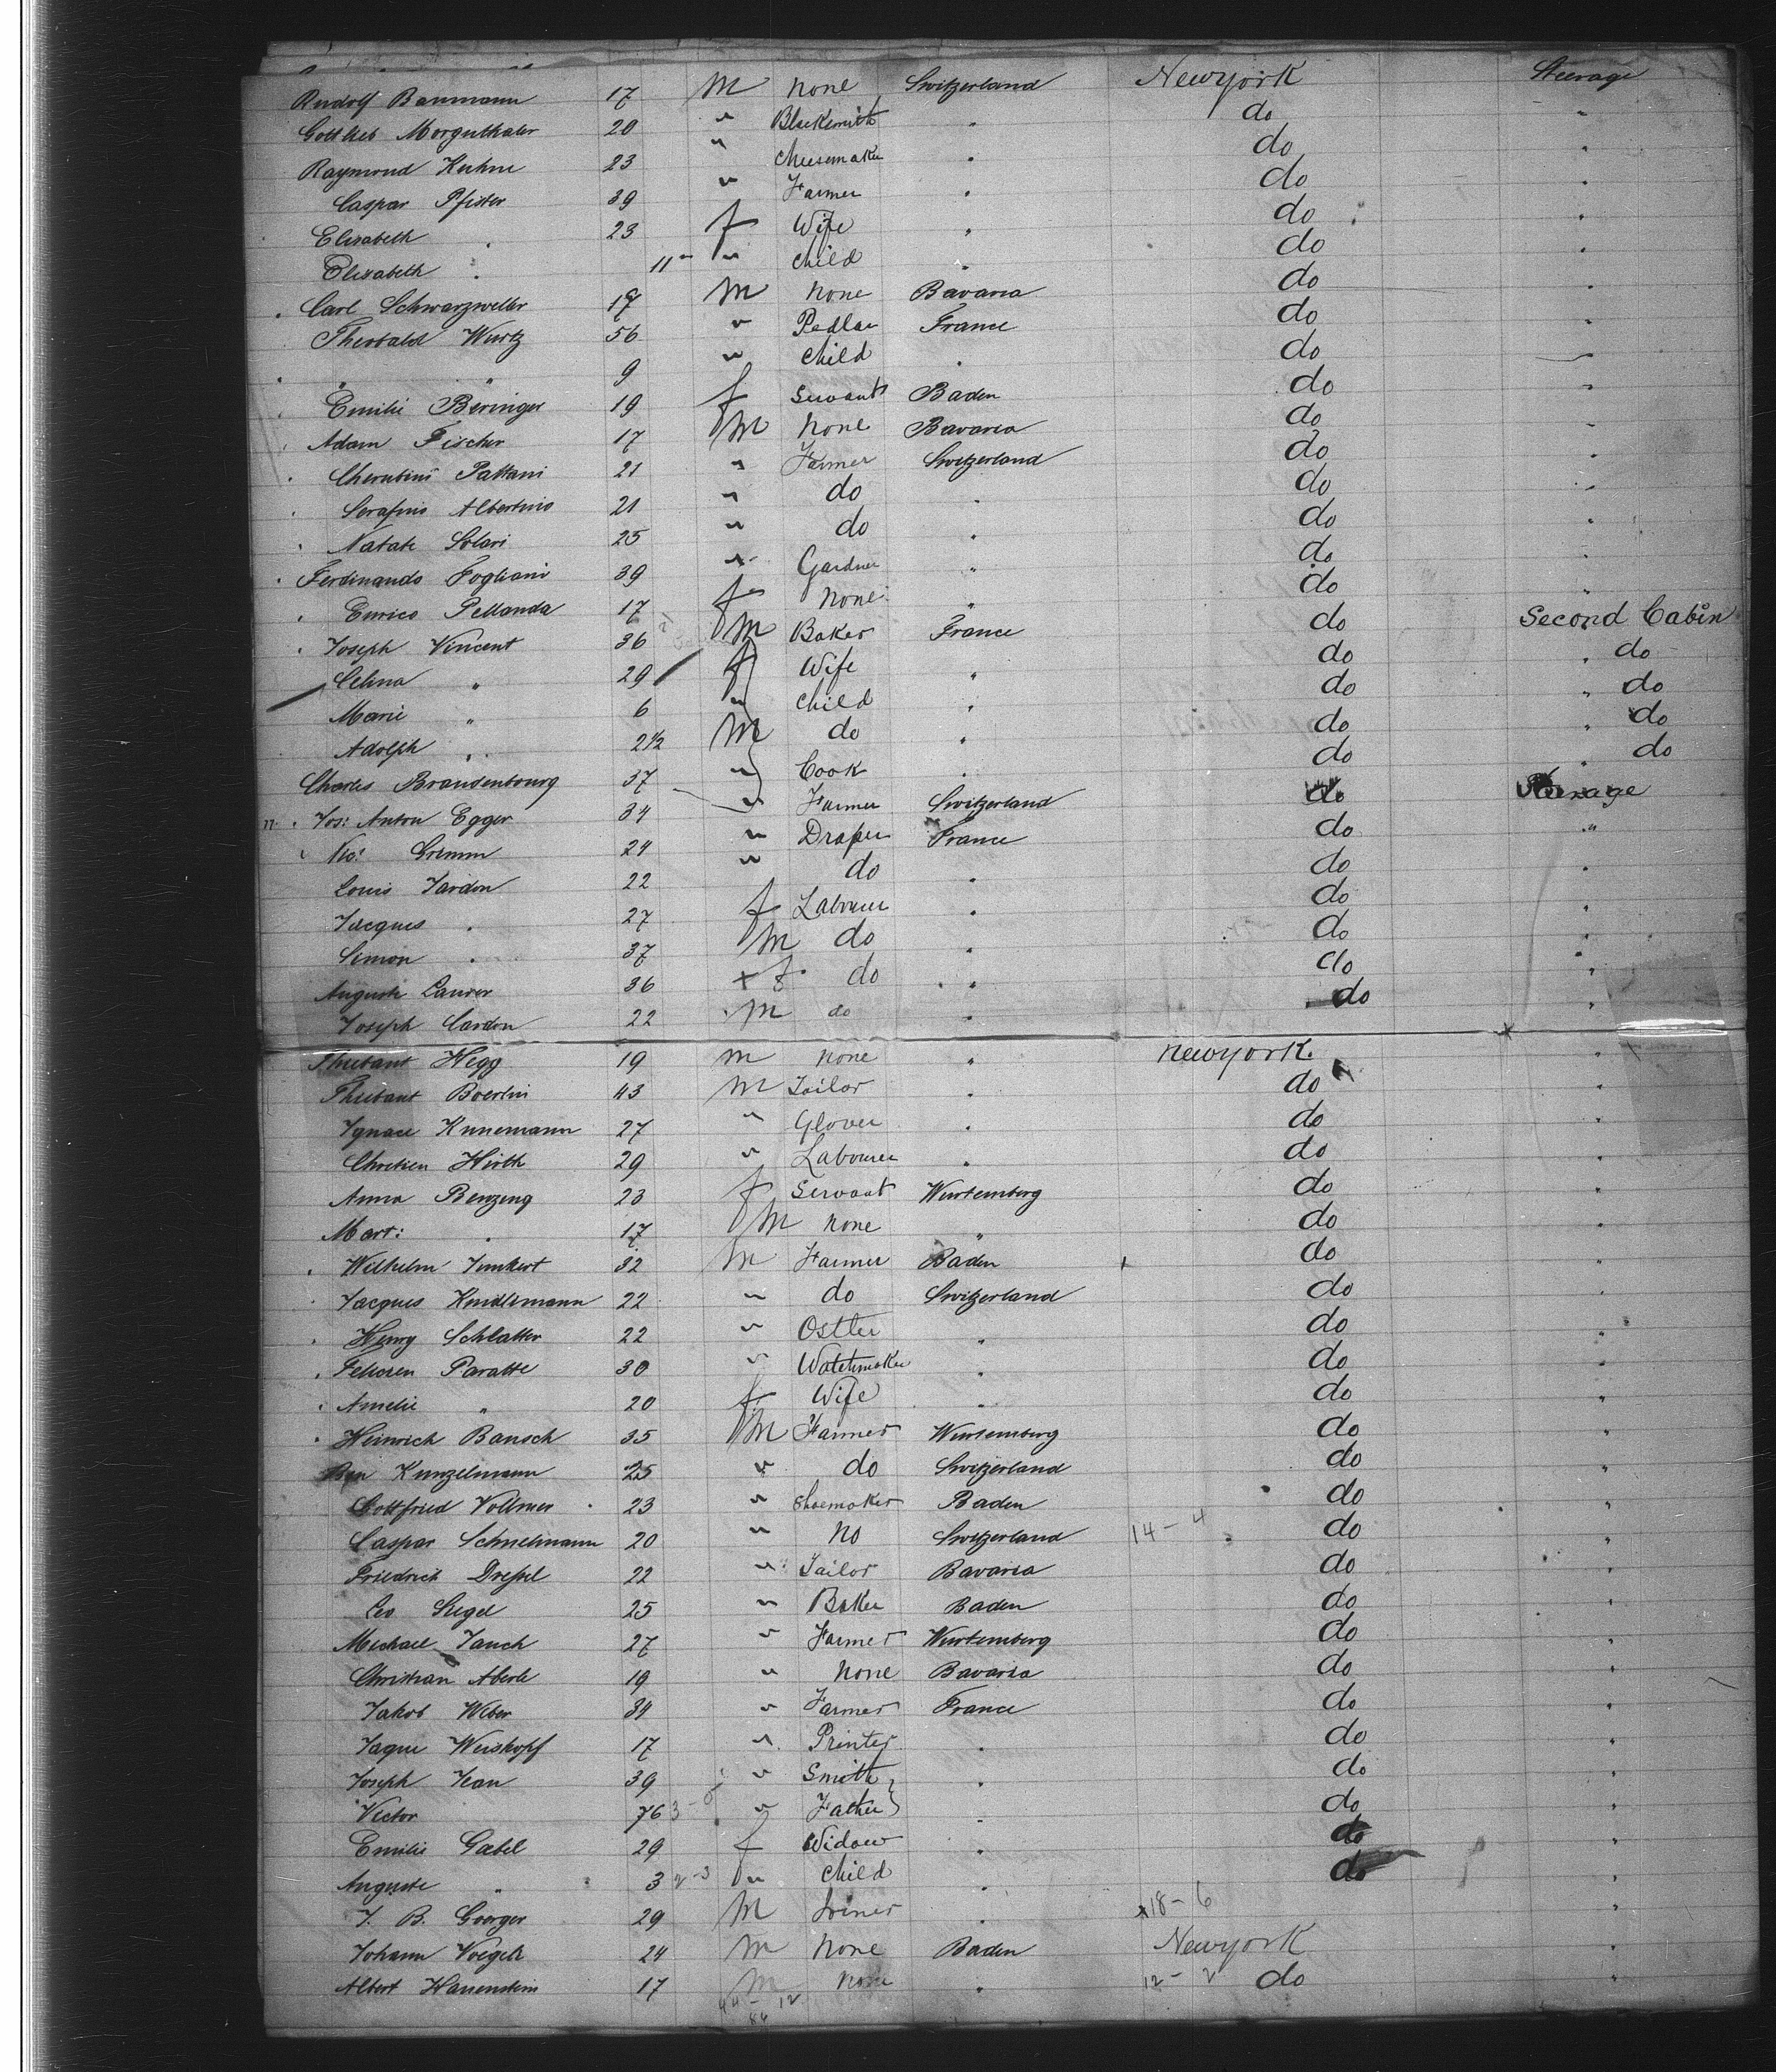 Rudolf Baumann 17 M None Switzerland Newyork Steerage
Gottlieb Morgenthaler 20 " Blacksmith " do "
Raymond Kuhne 23 " Cheesemaker " do "
Caspar Pfister 39 " Farmer " do "
Elisabeth " 23 f Wife " do "
Elisabeth " 11 " " Child " do "
Carl Schwarzweller 17 M None Bavaria do "
Theobald Wurtz 56 " Pedlar France do "
" " 9 " Child " do "
Emilie Beringer 19 f Servant Baden do "
Adam Fischer 17 M None Bavaria do "
Cherubini Pattani 21 " Farmer Switzerland do "
Serafino Albertino 21 " do " do "
Natale Solari 25 " do " do "
Ferdinando Fogliani 39 " Gardner " do "
Enrico Pellanda 17 f None " do "
Joseph Vincent 36 M Baker France do Second Cabin
Celina " 29 f Wife " do " do
Marie " 6 " Child " do " do
Adolph " 2 1/2 M do " do " do
Charles Brandenbourg 37 " Cook " do " do
Jos: Anton Egger 34 " Farmer Switzerland do Steerage
Grimm 24 " Draper France do "
Louis Jardon 22 " do " do "
Jacques " 27 f Labourer " do "
Simon " 37 M do " do "
Auguste Laurer 36 + f do " do "
Joseph Cardon 22 M do " do "
Thiebaut Hegg 19 M None " Newyork "
Thiebaut Boerlin 43 M Tailor " do "
Ignace Kunemann 27 " Glover " do "
Chretien Hirth 29 " Labourer " do "
Anna Benzing 23 f Servant Wurtemberg do "
Mart: " 17 M None " do "
Wilhelm Junkert 32 M Farmer Baden do "
Jacques Knidlimann 22 " do Switzerland do "
Henry Schlatter 22 " Ostler " do "
Paratte 30 " Watchmaker " do "
Amelie " 20 f Wife " do "
Heinrich Bansch 35 M Farmer Wurtemberg do "
Kunzelmann 25 " do Switzerland do "
Gottfried Vollmer 23 " Shoemaker Baden do "
Caspar Schnelmann 20 " No Switzerland 14 - 4 do "
Friedrich Dressel 22 " Tailor Bavaria do "
Leo Siegel 25 " Baker Baden do "
Michael Jauch 27 " Farmer Wurtemberg do "
Christian Aberle 19 " None Bavaria do "
Jakob Weber 34 " Farmer France do "
Jaque Weiskopf 17 " Printer " do "
Joseph Jean 39 " Smith " do "
Victor 76 " Father " do "
Emilie Gabel 29 f Widow " do "
Auguste " 3 2-3 " Child " do "
J. B. Goerger 29 M " x18 - 6 "
Johann Voegele 24 M None Baden Newyork "
Albert Hauenstein 17 M None " 12 - 2 do "
44 - 12
86